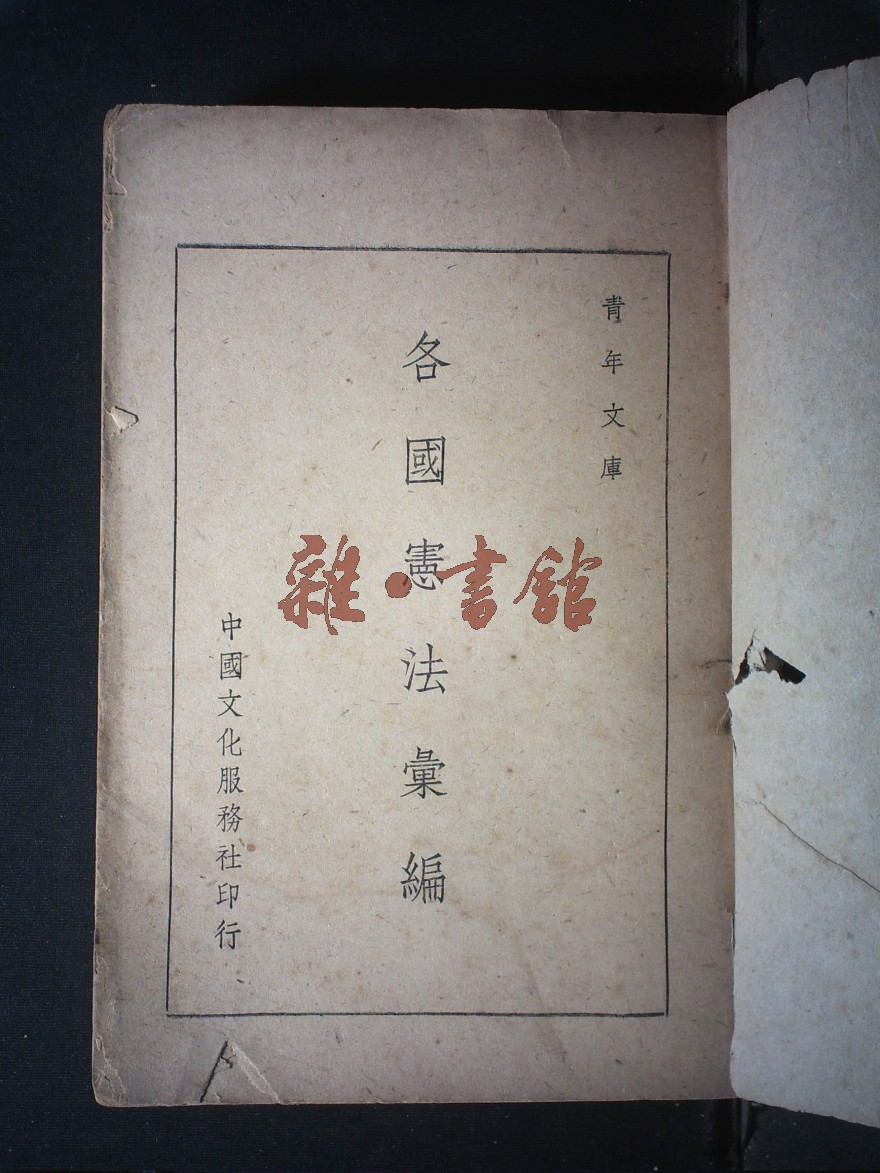 青年文庫
各國憲法彙編
中國文化服務社印行
雜·書館